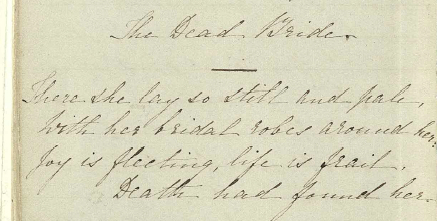 The Dead Bride.
There she lay so still and pale,
With her bridal robes around her:
Joy is fleeting, life is frail,
Death had found her.